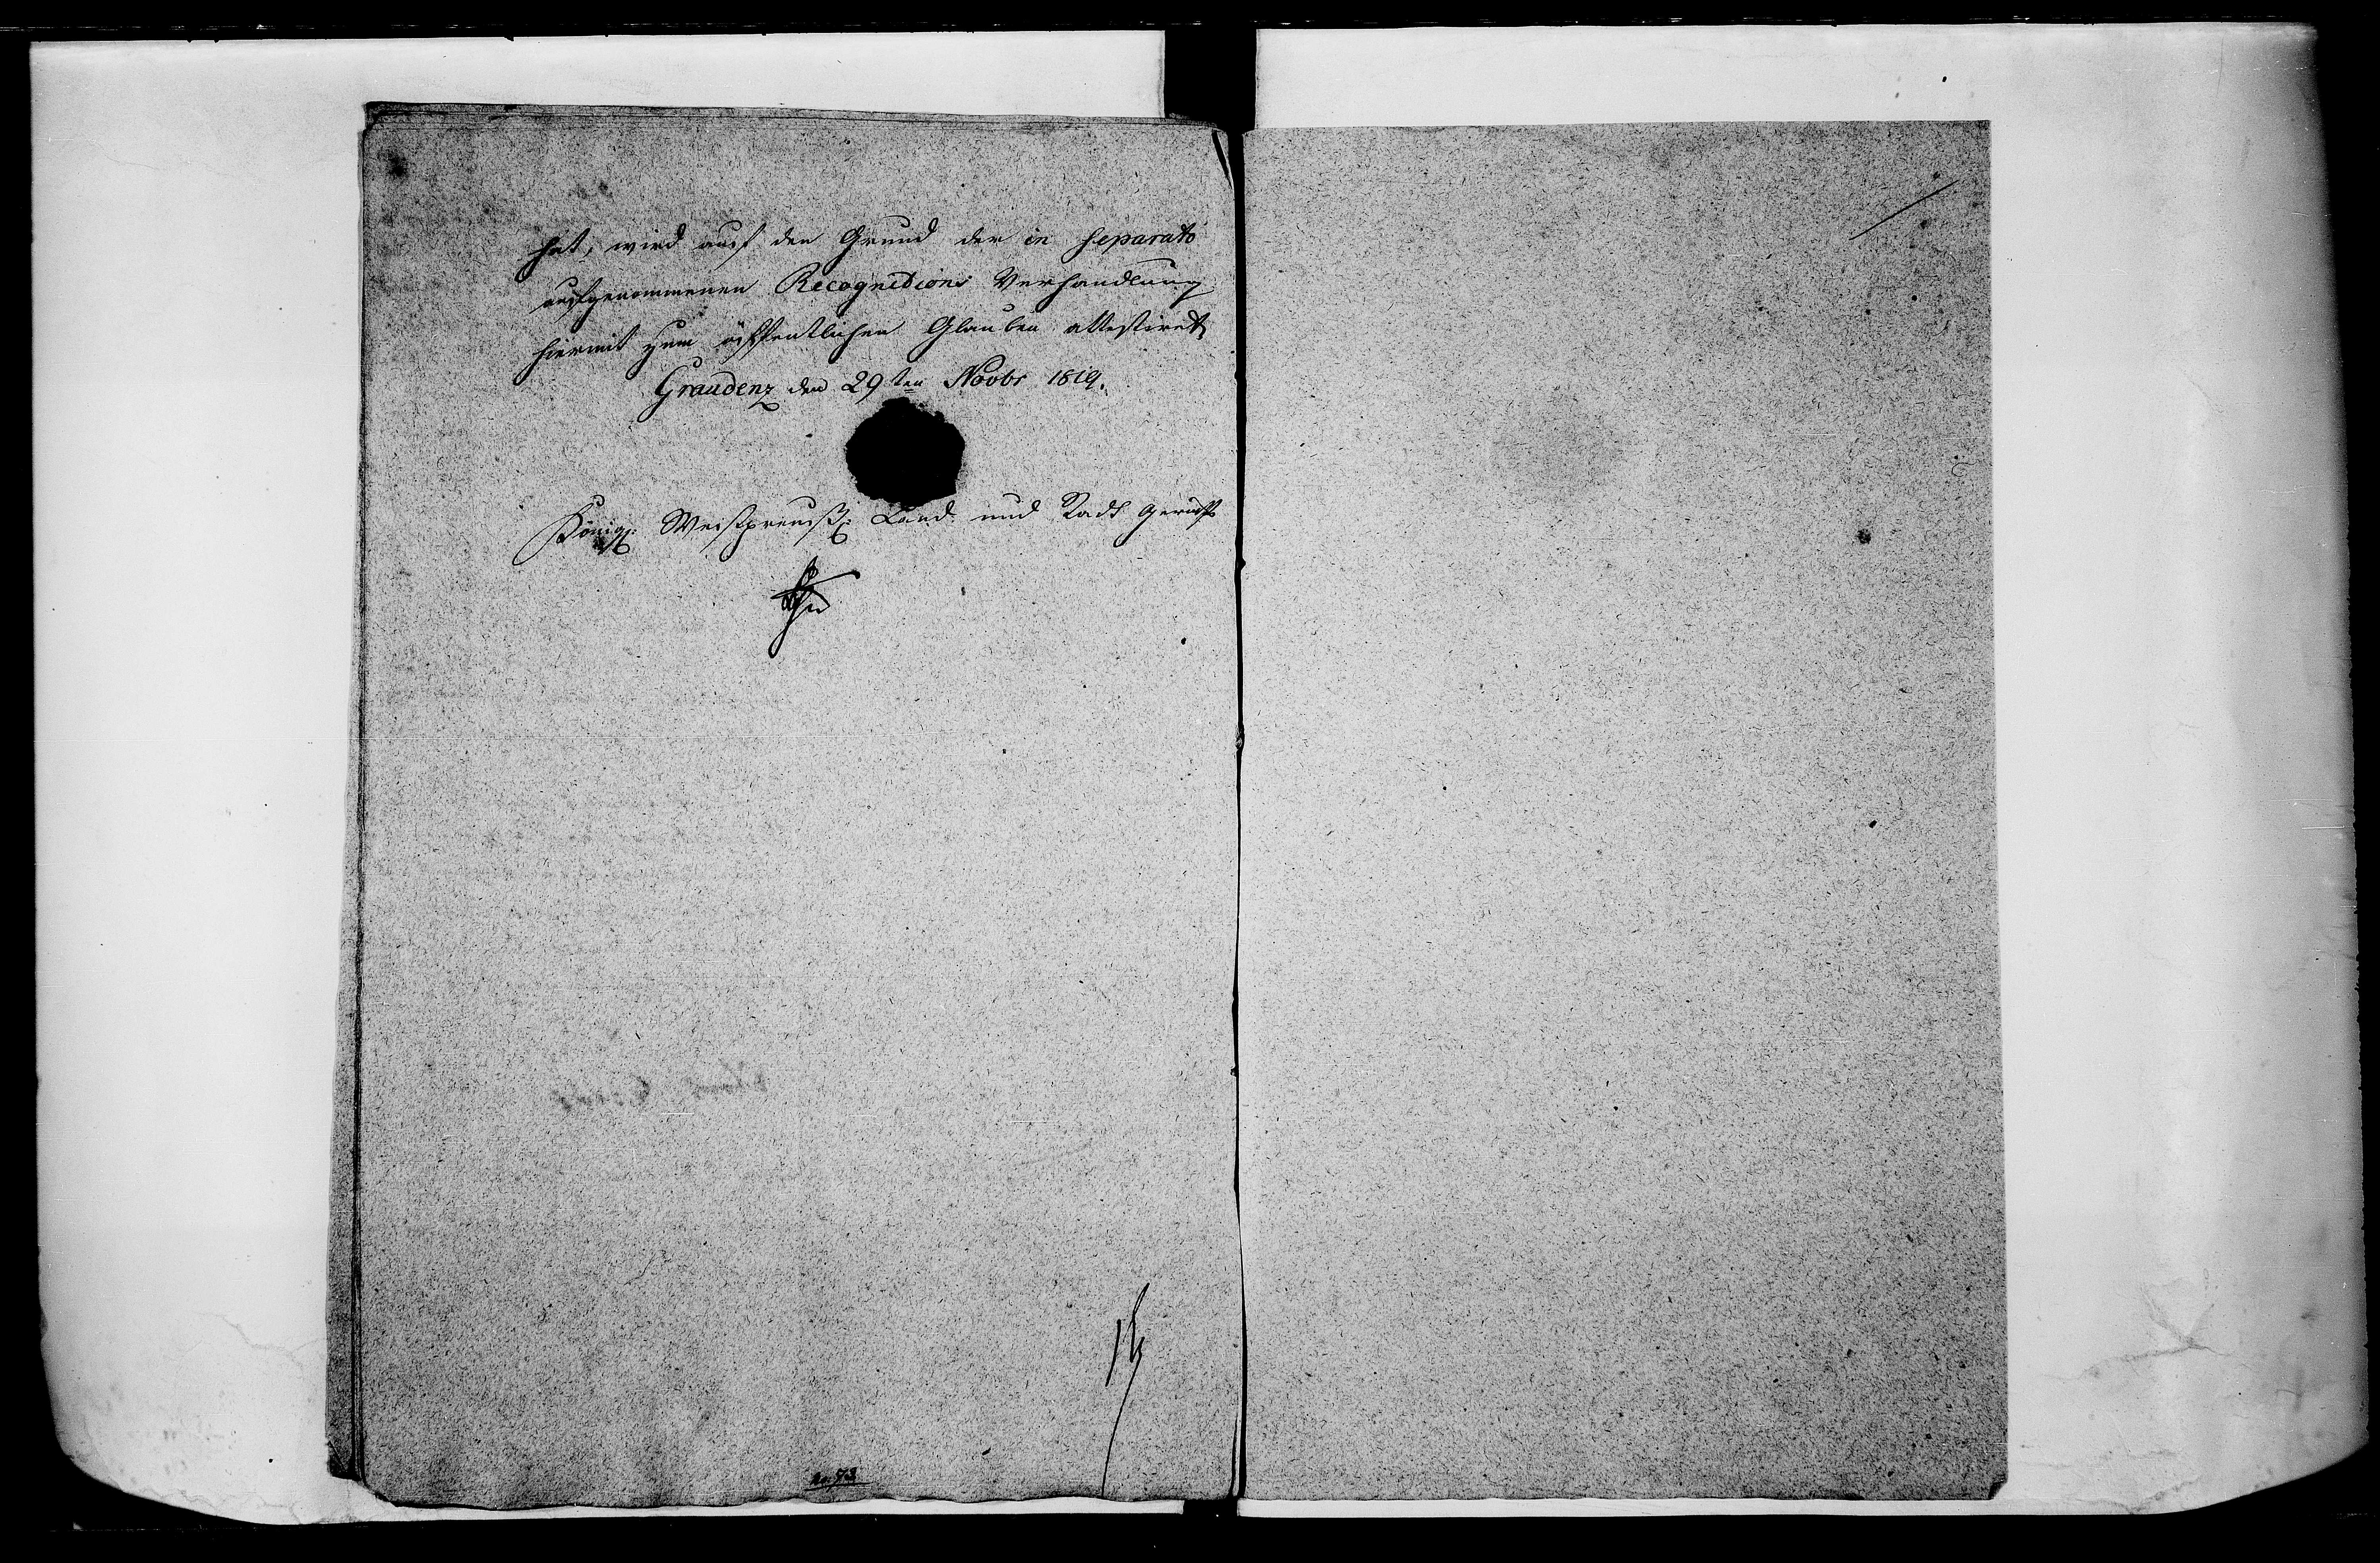 hat, wird auf den Grund der in separato
aufgenommenen Recognitions Verhandlung
hiermit zum öffentlichen Glauben attestiret
Graudenz den 29ten Novbr 1819.
Königl: Westpreuß: Land und Stadt Gericht